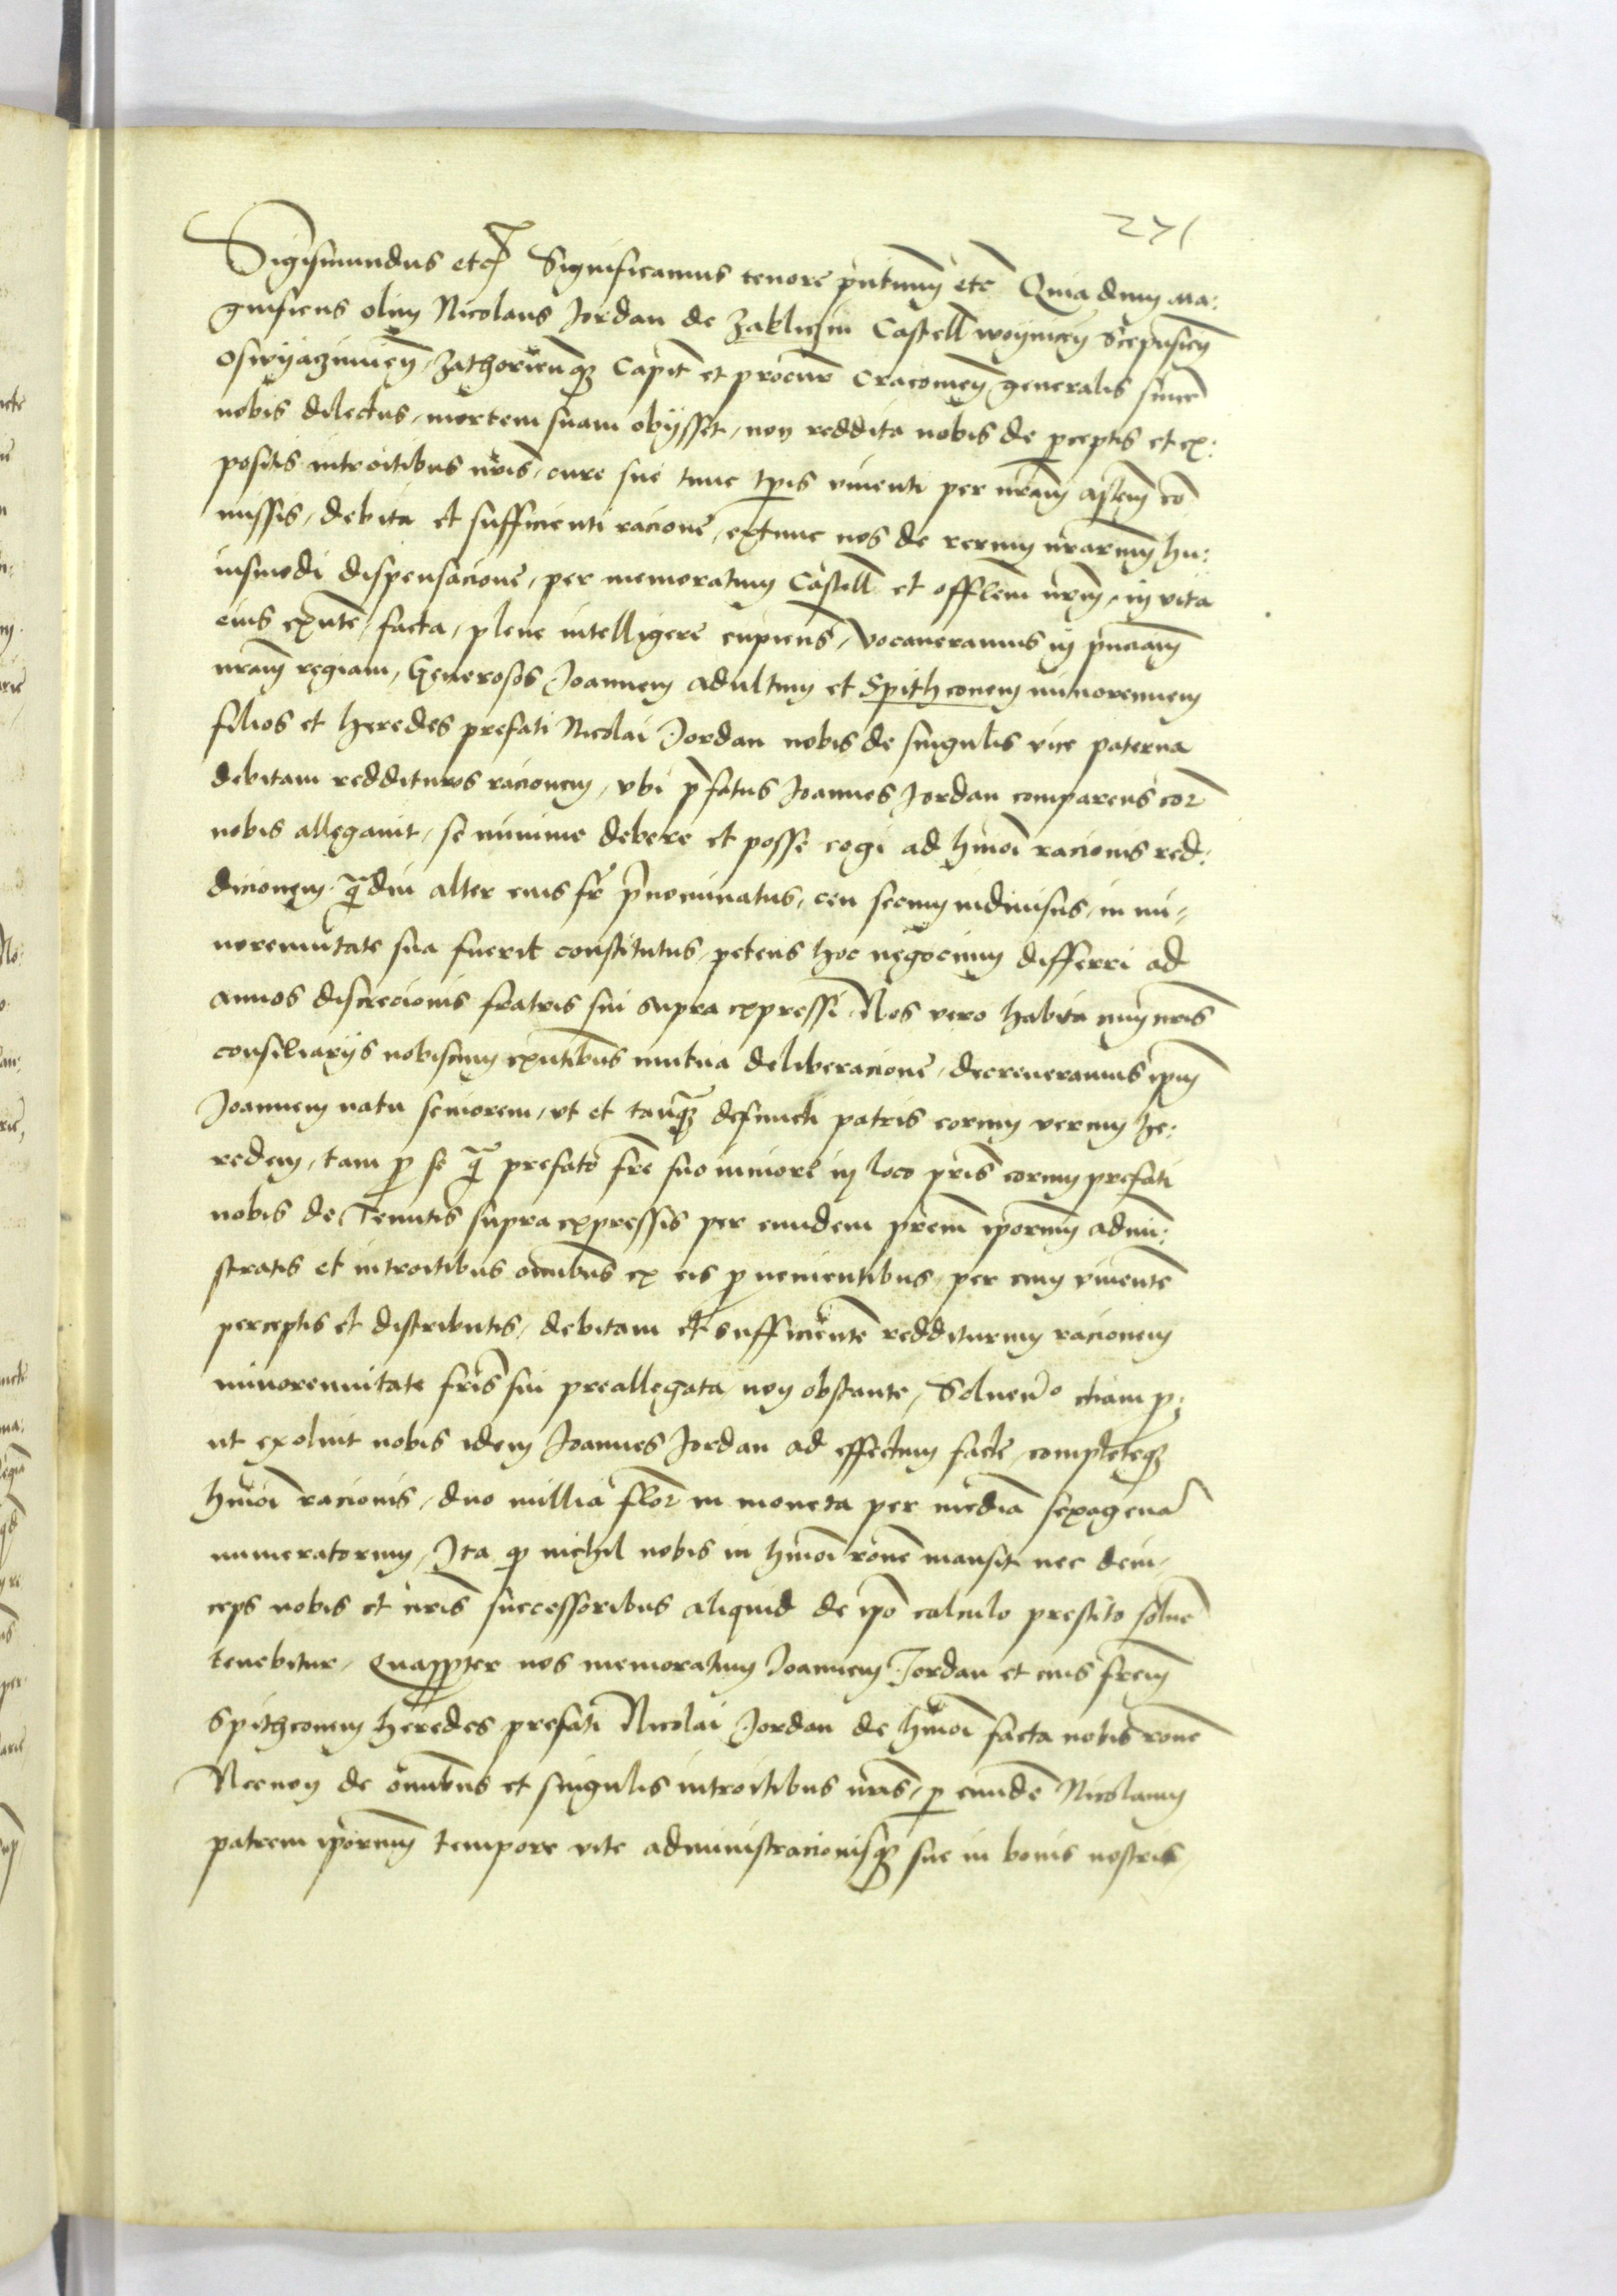 271
Sigismundus etc̃ Significamus tenore pñtium etc̃ Quia dum ma:
gnificus olim Nicolaus Jordan de Zakliczin Castell̃ woynicẽn Scepusieñ
Osswyaczimeñ, Zathorieñqȝ Capit̃ et procur̃ Cracouieñ generalis sincer̃
nobis dilectus, mortem suam obijsset, non reddita nobis de p̱ceptis et ex:
positis introitibus nr̃is, cure sue tunc tp̃is viuenti per nr̃am Mtẽm cõ
missis, debita et sufficienti racione, extunc nos de rerum nr̃arum hu:
iusmodi dispensacione, per memoratum Castell̃ et offl̃em nr̃m, in vita
eius exñte, facta, plene intelligere cupiens̃, vocaueramus in pñciam
nr̃am regiam, Generosos Joannem adultum et Spithconem minorennem
filios et heredes prefati Nicolai Jordan nobis de singulis vice paterna
debitam reddituros racionem, vbi p̃fatus Joannes Jordan comparens cor̃
nobis allegauit, se minime debere et posse cogi ad hmõi racionis red:
dicionem, q̃diu alter eius fr̃ p̃nominatus, ceu secum indiuisus, in mi-
norennitate sua fuerit constitutus, petens hoc negocium differri ad
annos discrecionis fratris sui supra expressi. Nos vero habita cum nr̃is
consiliarijs nobiscum exñtibus mutua deliberacione, decreueramus ip̃m
Joannem natu seniorem, vt et tanqȝ defuncti patris eorum verum he:
redem, tam p̱ se q̃ prefato fr̃e suo iuniore in loco pr̃is eorum prefati
nobis de Tenutis supra expressis per eundem pr̃em ip̃orum admi:
stratis et introitibus om̃ibus ex eis p̱uenientibus, per eum viuentẽ
perceptis et distributis, debitam et sufficientẽ redditurum racionem
minorennitate fr̃is sui preallegata non obstante, Soluen̄o etiam p̱:
ut exoluit nobis idem Joannes Jordan ad effectum facte, completeqȝ
hmõi racionis, duo millia flor̃ in moneta per mediã sexagenã
numeratorum, Ita qp̱ nichil nobis in hmõi rõne mansit nec dein-
ceps nobis et nr̃is successoribus aliquid de ip̃o calculo prestito soluer̃
tenebitur, Quapp̱ter nos memoratum Joannem Jordan et eius fr̃em
Spithconem heredes prefati Nicolai Jordan de hmõi facta nobis rõne
Necnon de om̃ibus et singulis introitibus nr̃is, p̱ eundẽ Nicolaum
patrem ip̃orum tempore vite administracionisqȝ sue in bonis nostris,